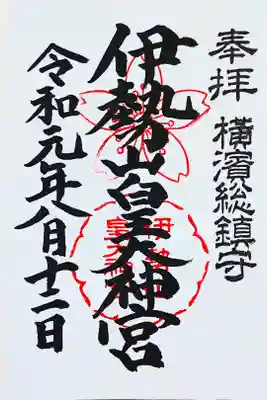 奉拝 横濱総鎮守
伊勢山皇大神宮
令和元年八月十二日